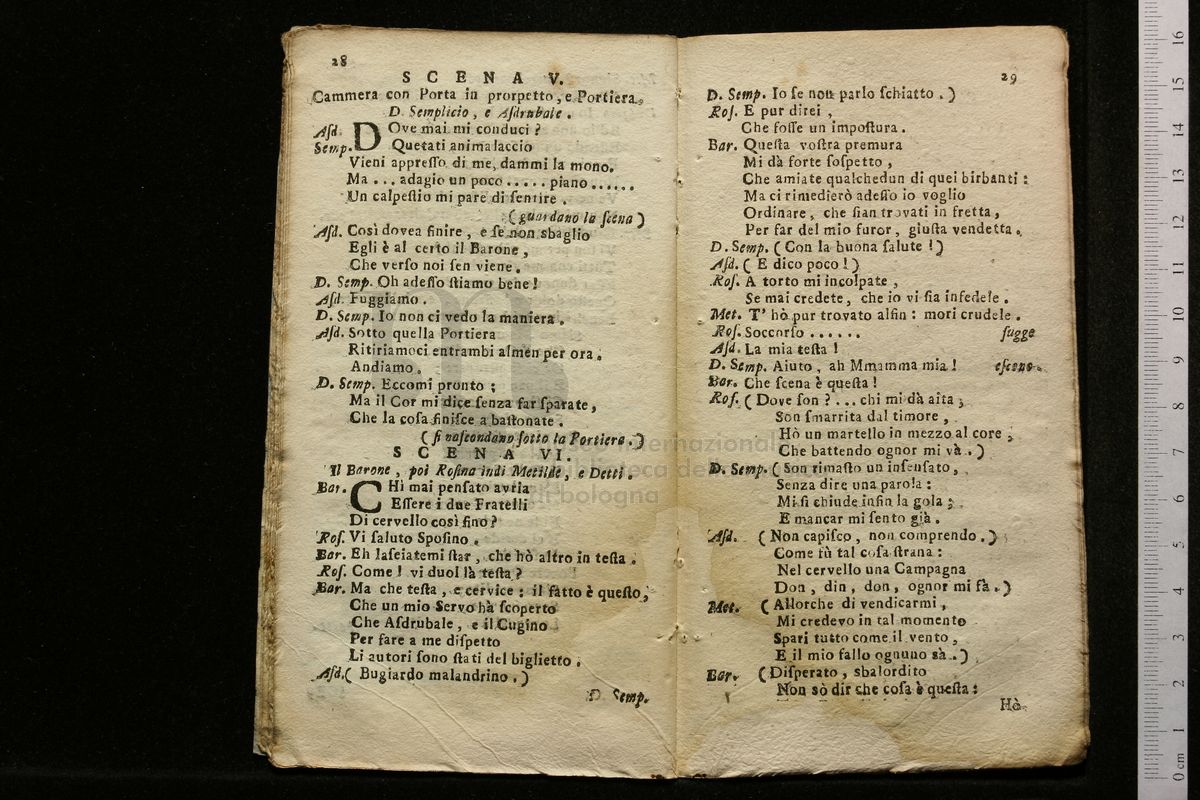 28
SCENA V.
Cammera con Porta in prorpetto, e Portiera.
D. Semplicio, e Asdrubale.
Asd. DOve mai mi conduci?
Semp. Quetati animalaccio
Vieni appresso di me, dammi la mono.
Ma ... adagio un poco ..... piano ......
Un calpestio mi pare di sentire.
(guardano la scena)
Asd. Così dovea finire, e se non sbaglio
Egli è al certo il Barone,
Che verso noi sen viene.
D. Semp. Oh adesso stiamo bene!
Asd. Fuggiamo.
D. Semp. Io non ci vedo la maniera.
Asd. Sotto quella Portiera
Ritiriamoci entrambi almen per ora.
Andiamo.
D. Semp. Eccomi pronto;
Ma il Cor mi dice senza far sparate,
Che la cosa finisce a bastonate.
(si nascondano sotto la Portiera.)
SCENA VI.
Il Barone, poi Rosina indi Metilde, e Detti.
Bar. CHi mai pensato avria
Essere i due Fratelli
Di cervello così fino?
Ros. Vi saluto Sposino.
Bar. Eh lasciatemi star, che hò altro in testa.
Ros. Come! vi duol la testa?
Bar. Ma che testa, e cervice: il fatto è questo,
Che un mio Servo hà scoperto
Che Asdrubale, e il Cugino
Per fare a me dispetto
Li autori sono stati del biglietto.
Asd. (Bugiardo malandrino.)
D. Semp.
29
D. Semp. Io se non parlo schiatto.)
Ros. E pur direi,
Che fosse un impostura.
Bar. Questa vostra premura
Mi dà forte sospetto,
Che amiate qualchedun di quei birbanti:
Ma ci rimedierò adesso io voglio
Ordinare, che sian trovati in fretta,
Per far del mio furor, giusta vendetta.
D. Semp. (Con la buona salute!)
Asd. (E dico poco!)
Ros. A torto mi incolpate,
Se mai credete, che io vi sia infedele.
Met. T' hò pur trovato alfin: mori crudele.
Ros. Soccorso ...... fugge
Asd. La mia testa!
D. Semp. Aiuto, ah Mmamma mia! escono.
Bar. Che scena è questa!
Ros. (Dove son? ... chi mi dà aita;
Son smarrita dal timore,
Hò un martello in mezzo al core;
Che battendo ognor mi và.)
D. Semp. (Son rimasto un insensato,
Senza dire una parola:
Mi si chiude infin la gola;
E mancar mi sento già.
Asd. (Non capisco, non comprendo.)
Come fù tal cosa strana:
Nel cervello una Campagna
Don, din, don, ognor mi fà.)
Met. (Allorche di vendicarmi,
Mi credevo in tal momento
Spari tutto come il vento,
E il mio fallo ognuno sà.)
Bar. (Disperato, sbalordito
Non sò dir che cosa è questa:
Hò